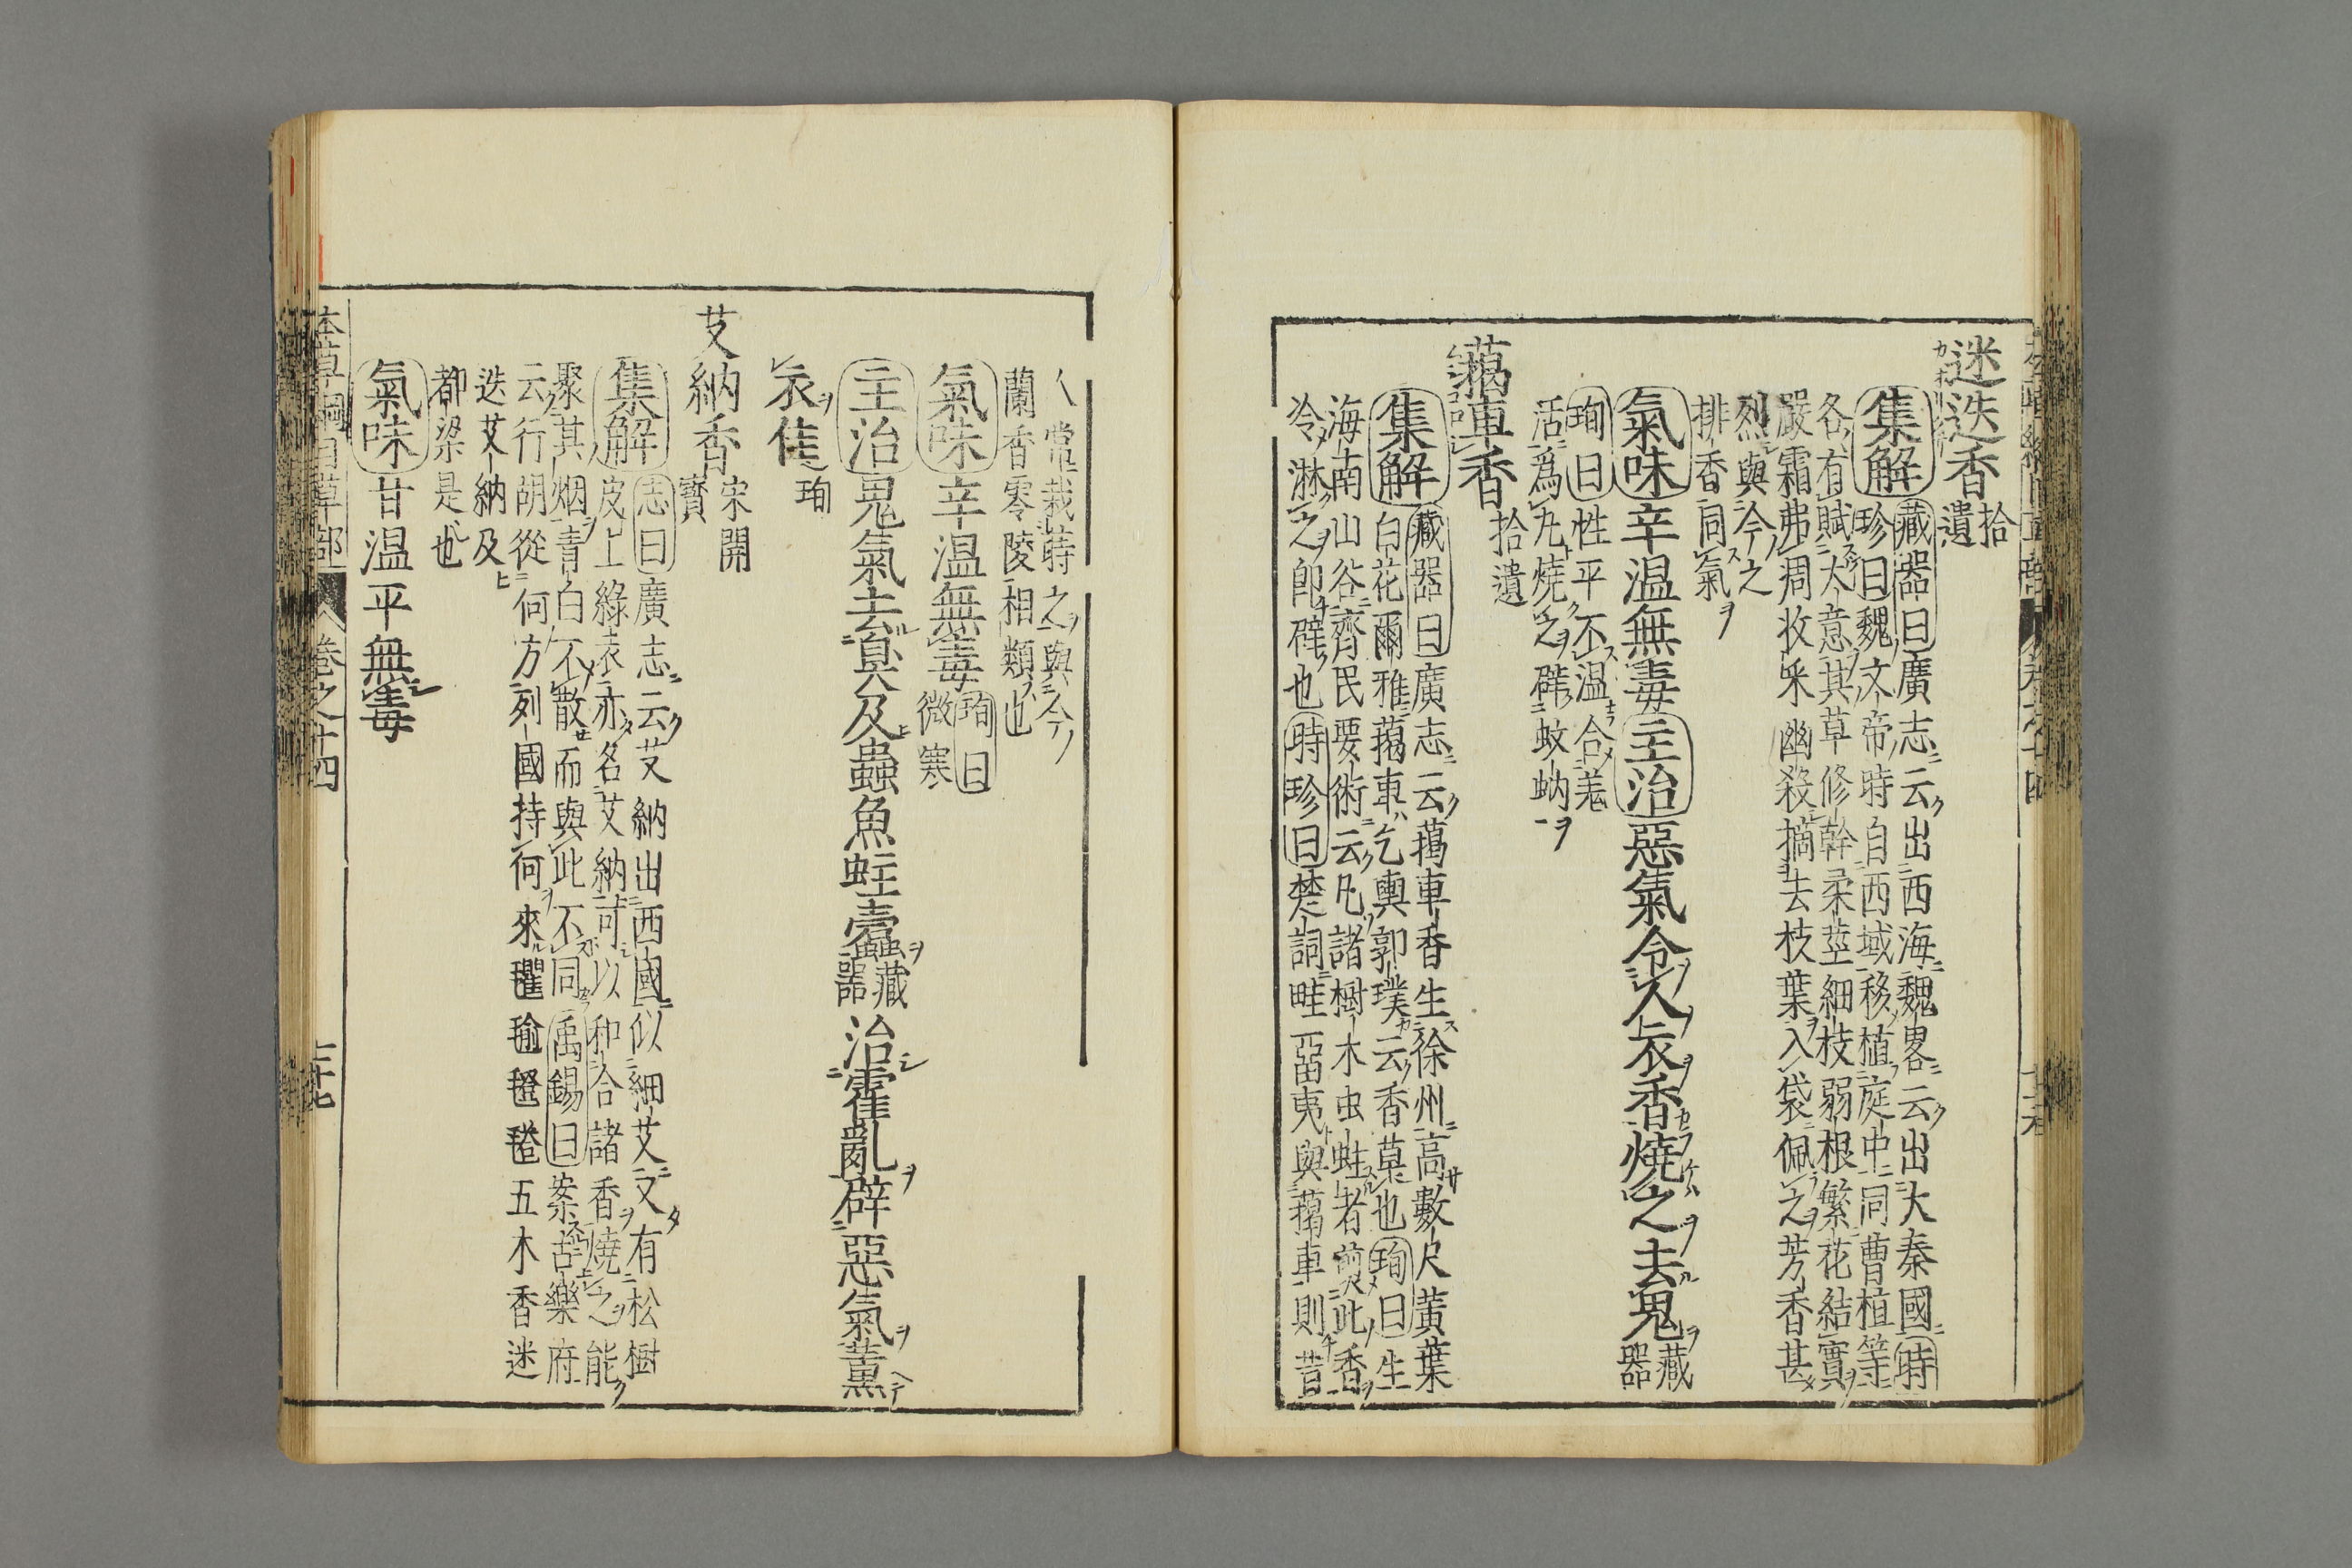 迷迭香拾遺
集解藏器曰廣志云出西海魏畧云出大秦國時
珍曰魏文帝時自西域移植庭中同曹植等
各有賦大意其草修幹柔莖細枝弱根繁花結實
嚴霜弗凋收采幽殺摘去枝葉入袋佩之芳香甚
烈與今之
排香同氣
氣味辛温無毒主治惡氣令人衣香燒之去鬼藏器
珣曰性平不温合羗
活爲丸燒之辟蚊蚋
藒車香拾遺
集解藏器曰廣志云藒車香生徐州高數尺黄葉
白花爾雅藒車乞輿郭璞云香草也珣曰生
海南山谷齊民要術云凡諸樹木虫蛀者煎此香
冷淋之卽辟也時珍曰楚詞畦留夷與藒車則昔
人常栽蒔之與今
蘭香零陵相類也
氣味辛温無毒珣曰微寒
主治鬼氣去臭及蟲魚蛀蠧藏器治霍亂辟惡氣薰
衣佳珣
艾納香宋開寳
集解志曰廣志云艾納出西國似細艾又有松樹
皮上綠衣亦名艾納可以和合諸香燒之能
聚其烟青白不散而與此不同禹錫曰案古樂府
云行胡從何方列國持何來氍毹毾㲪五木香迷
迭艾納及
都梁是也
氣味甘温平無毒
本草綱目草部 卷之十四 三十七